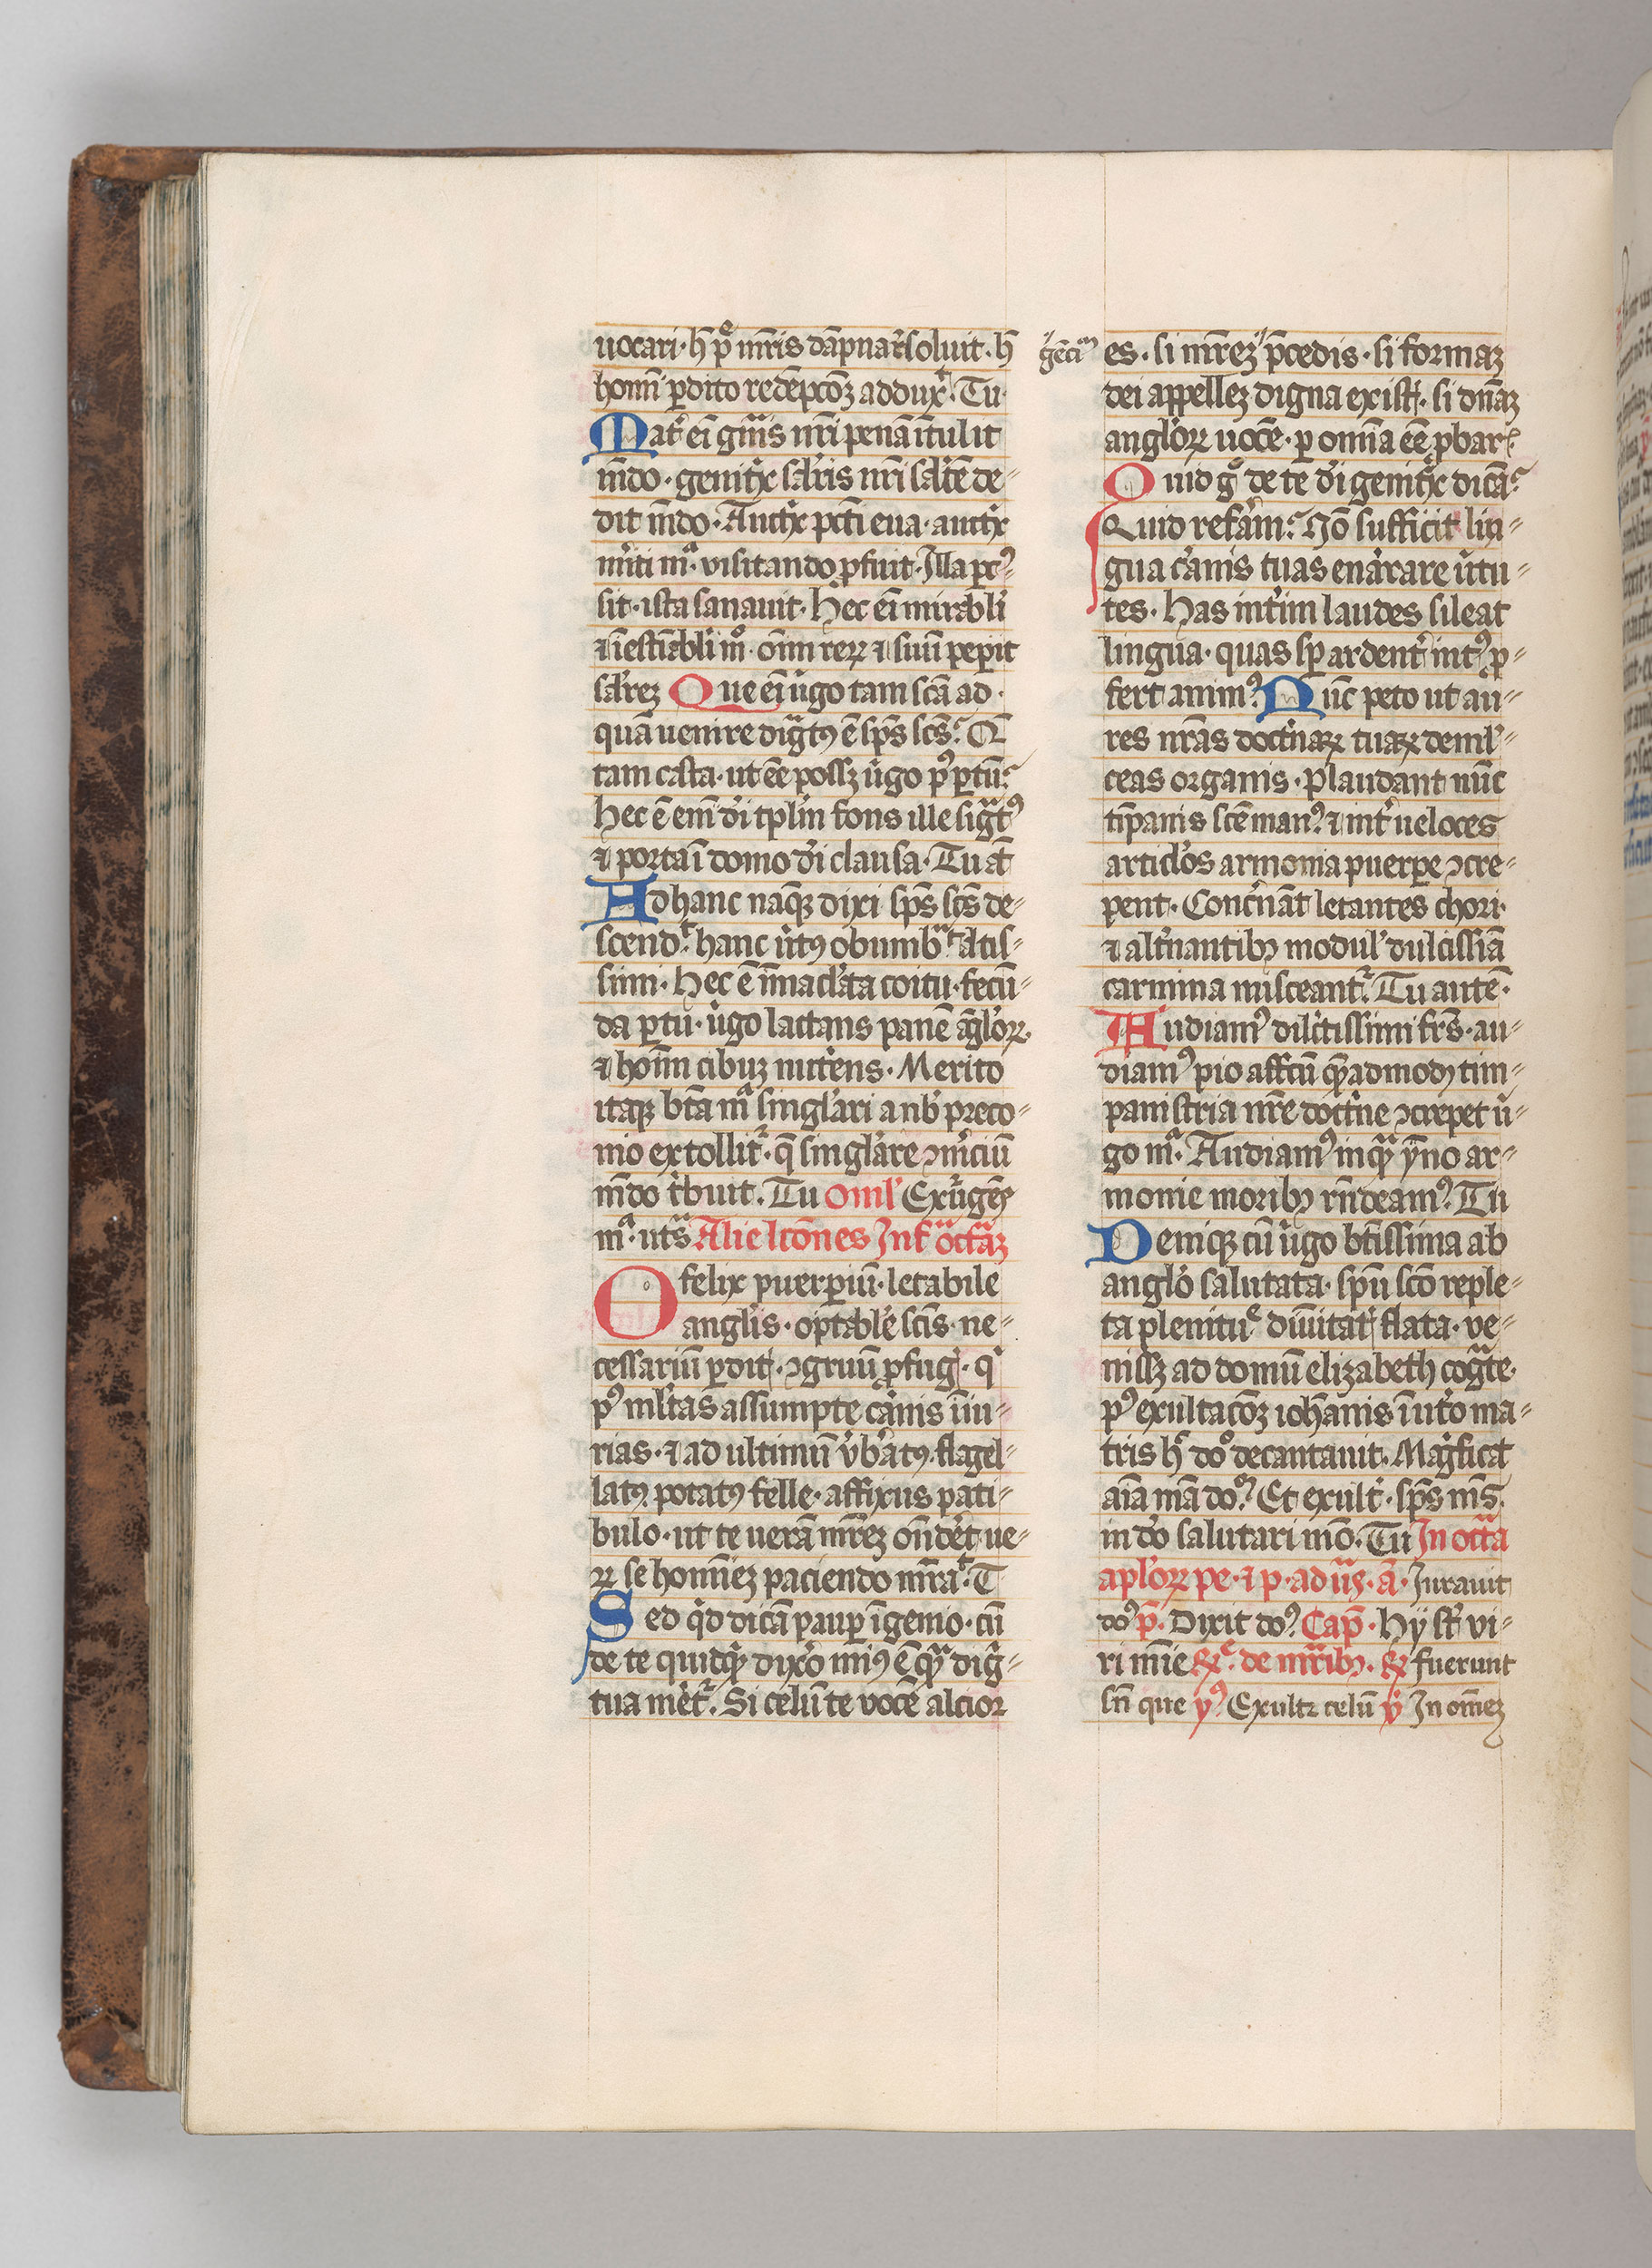 uocari · h̄ p̄ mr̄is dāpnat̄ soluit · h̄
homī p̄dito redēpcōꝫ addux͛ · Tu
Mat͛ ei gn̄is nr̄i penā ītulit
mūdo · genit͛x sal̄ris nr̄i sal̄tē de⸗
dit mūdo · Auct͛x pctī eua · auct͛x
m͛iti mͣ · visitando ꝓfuit · Illa pc⸗
sit · ista sanauit · hec eī mirabl̓i
⁊ īestīabl̓i mͦ · om̄i reꝝ ⁊ suū pepit
sal̄reꝫ Que eī u͛go tam scā ad ·
quā uenire dignatꝰ ē sp̄s scs̄ · Q̄
tam casta · ut eē possꝫ u͛go pꝰ ꝑtū
hec ē em̄ di̓ tp̄lm̄ fons ille signatꝰ
⁊ porta ī domo di̓ clausa · Tu at̄
Ad hanc naqꝫ dixi sp̄s scs̄ de⸗
scend͛ · hanc u͛tꝰ obumbͣt altis⸗
simi · hec ē īmacl̓ata coitu · fecū⸗
da ꝑtu · u͛go lactans panē āgl̓oꝝ
⁊ homī cibuꝫ nut͛ens · Merito
itaqꝫ btā mͣ singl̓ari a nb̓ preco⸗
nio extollit͛ · q̄ singl̓are ꝯm͛ciū
mūdo t͛buit · Tu Omīl̓ Exurgēs
mͣ · utsͣ Alie lcōnes Infͣ octaꝫ
O felix puerpiū · letabile
angl̓is · optabl̓e scīs · ne⸗
cessariū ꝑdit͛ · ꝯgruū ꝓfug͛ · q͛
pꝰ ml̓tas assumpte carnis īiu⸗
rias · ⁊ ad ultimū v͛b͛atꝰ · flagel⸗
latꝰ potatꝰ felle · affixus pati⸗
bulo · ut te uerā mr̄eꝫ ondet͛ · ve⸗
ꝝ se homīeꝫ paciendo mr̄aꝉ · T
Sed qd̓ dicā paup īgenio · cū
de te quidqͣꝫ dix͛o minꝰ ē qͣꝫ dig⸗
tua met͛ · Si celū te vocē alcior
gēciū es · si mr̄eꝫ p̄cedis · si formaꝫ
dei appelleꝫ digna exist͛ · si dn̄aꝫ
angl̓oꝝ uocē · ꝑ omīa eē ꝓbar͛
Quid gͦ de te di̓ genit͛x dicā
Quid refam · Nō sufficit lin⸗
gua carnis tuas enarrare u͛tu⸗
tes · has int͛im laudes sileat
lingua · quas sꝑ ardent͛ intꝰ ꝓ⸗
fert animꝰ · Nūc peto ut au⸗
res nr̄as doct͛naꝝ tuaꝝ demul⸗
ceas organis · plaudant nūc
tīpanis scē manꝰ · ⁊ int͛ ueloces
articl̓os armonia puerpe ꝯcre⸗
pent · Concīnāt letantes chori
⁊ alt͛nantibꝫ modul̓ dulcissīa
carmina misceant͛ · Tu autē ·
Audiamꝰ dilc̄tissimi frs̄ · au⸗
diamꝰ pio affcū qͣꝫadmodꝫ tim⸗
panistria nr̄e doct͛ne ꝯcrepet u͛⸗
go mͣ · Audiamꝰ inqͣꝫ ym̄no ar⸗
monie moribꝫ rn̄deamꝰ · Tu
Deniqꝫ cū u͛go btīssima ab
angl̓o salutata · spū scō reple⸗
ta plenitu͛ᵉ diuīitat͛ flata · ve⸗
nissꝫ ad domū elizabeth cogͣte ·
pꝰ exultacōꝫ ioh̄annis ī ut͛o ma⸗
tris hͦ doͦ decantauit · Mag͛ficat
aīa mā doꝫ · Et exult͛ · sp̄s ms̄
in do̓ salutari mo̓ · Tu In octā
apl̓oꝝ pe · ⁊ p · ad uꝰs · ā · Iurauit
doꝰ p̄ · Dixit doꝰ Cap̄ · Hij st̄ vi⸗
ri mīe ℞ · de mr̄ibꝫ · ℞ fuerunt
sn̄ que yꝰ Exultꝫ celū ℣ In om̄eꝫ